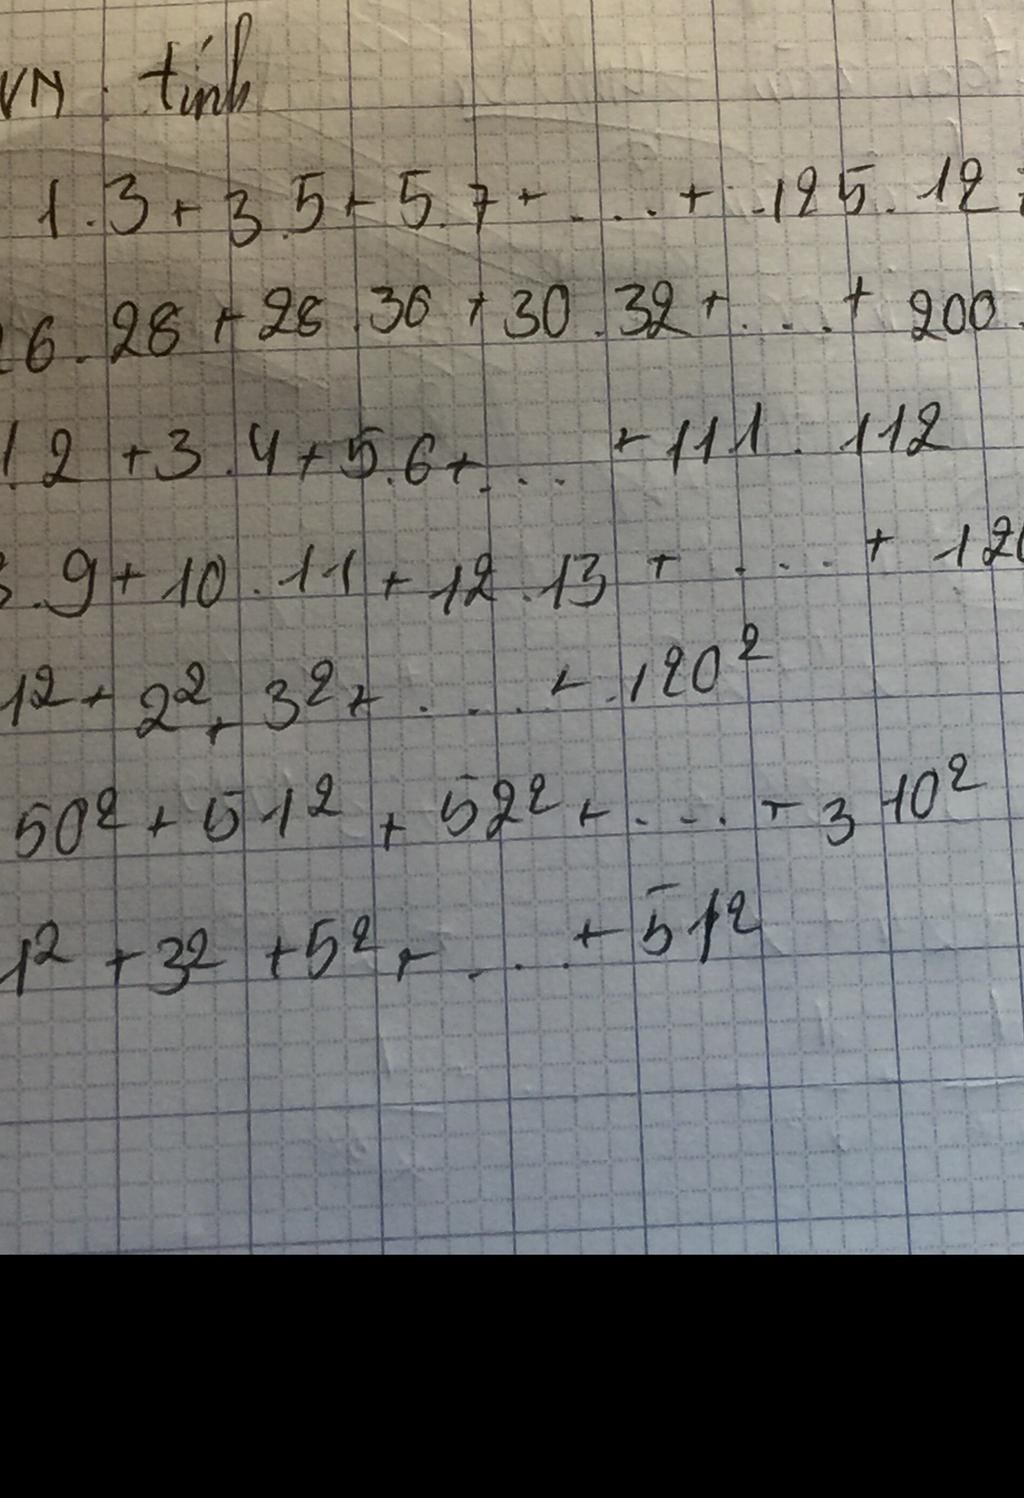 VN. tính
1.3 + 3.5 + 5.7 + .... + 125.127
26.28 + 28.30 + 30.32 + .... + 200.
1.2 + 3.4 + 5.6 + .... + 111.112
8.9 + 10.11 + 12.13 + .... + 120
1² + 2² + 3² + .... + 120²
50² + 51² + 52² + .... + 310²
1² + 3² + 5² + .... + 51²